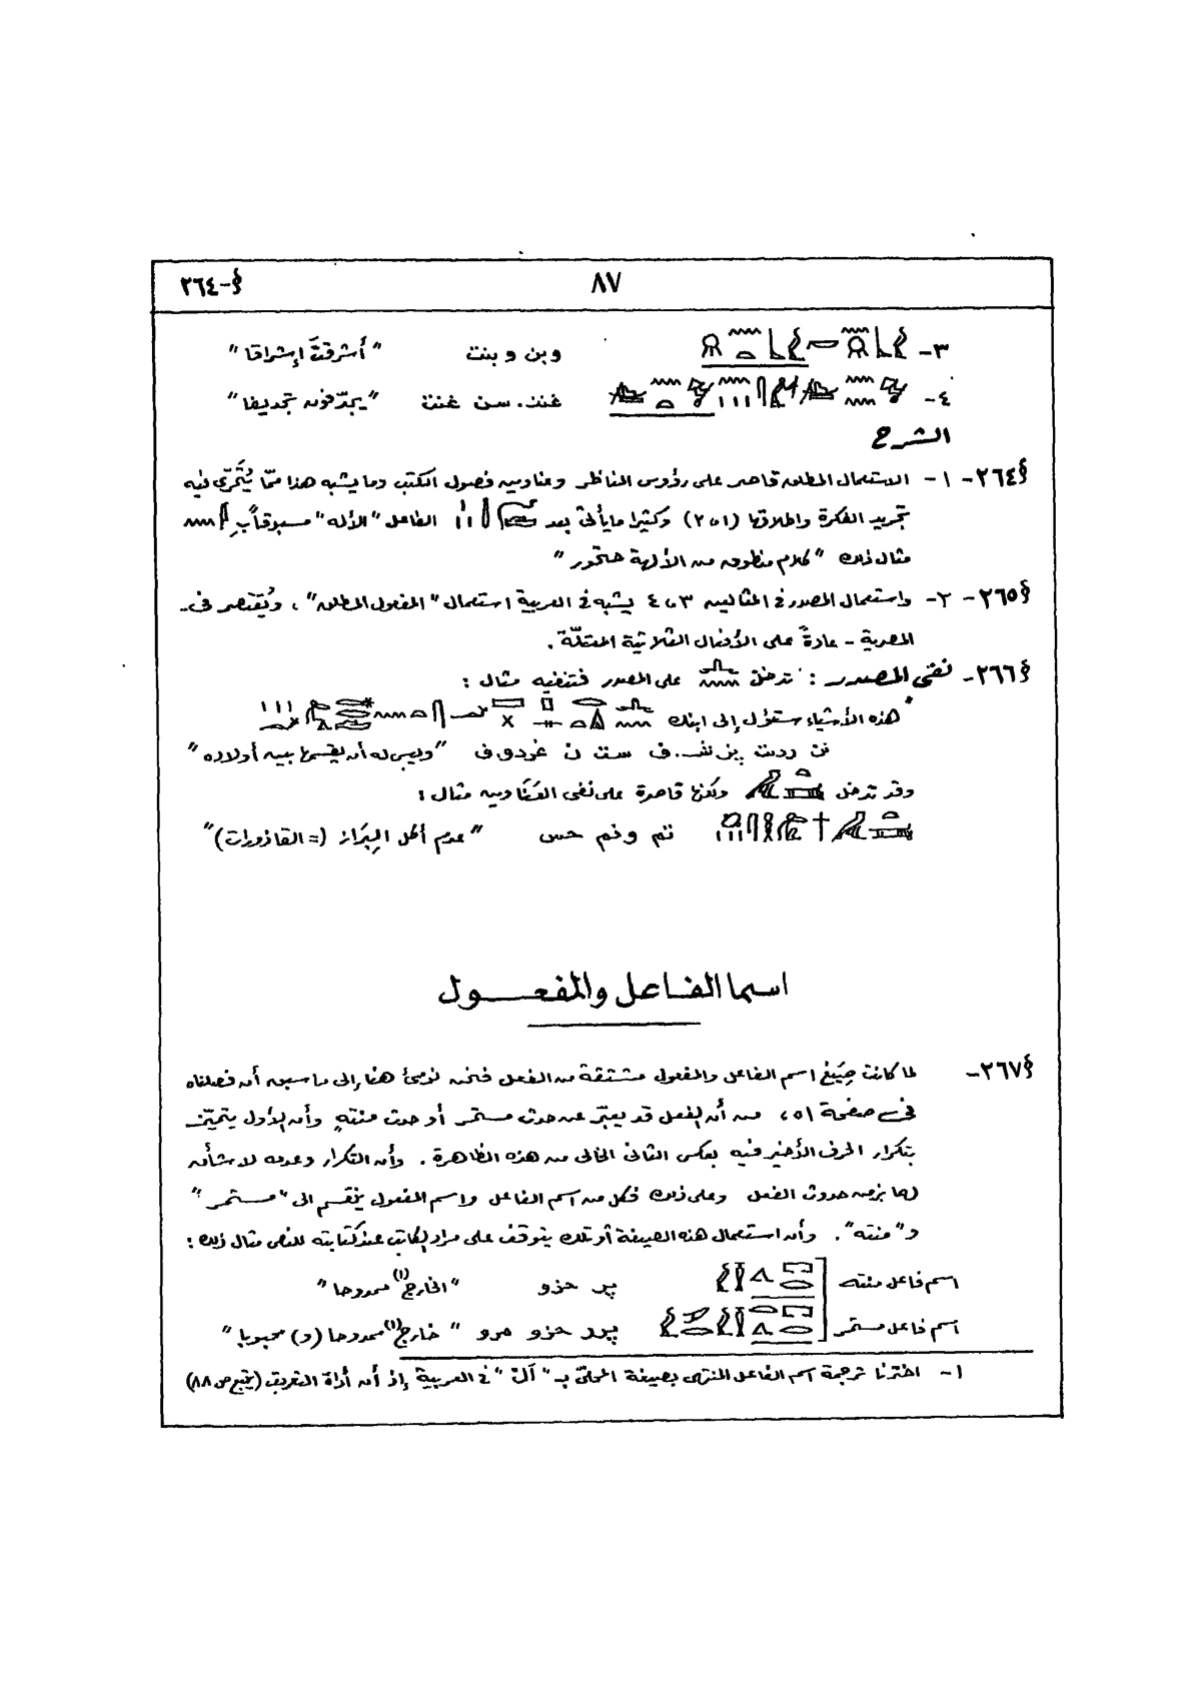 §-٢٦٤ ٨٧
٣- وبن وبنت "أشرقتَ إشراقا"
٤- خنت.سن خنت "يجدّفون تجديفا"
الشرح
§٢٦٤- ١- الاستعمال المطلق قاصر على رؤوس المناظر وعناوين فصول الكتب وما يشبه هذا ممّا يُتَحَرّى فيه
تجريد الفكرة واطلاقها (١، ٢) وكثيرا ما يأتى بعد الفاعل "الإله" مسبوقاً بـ
مثال ذلك "كلام منطوق من الألهة حتحور"
§٢٦٥- ٢- واستعمال المصدر فى المثالين ٣، ٤ يشبه فى العربية استعمال "المفعول المطلق"، ويُقتصر فى-
المصرية - عادةً على الأفعال الثلاثية المعتلّة.
§٢٦٦- نفى المصدر: تدخل على المصدر فتنفيه مثال:
هذه الأشياء ستؤل إلى ابنك
نن ردت بزشـ.ف ست ن غردو.ف "وليس له أن يقسمها بين أولاده"
وقد تدخل ولكنها قاصرة على نفى العناوين مثال:
تم ونم حس "عدم أكل البِرَاز (= القاذورات)"
اسما الفاعل والمفعول
§٢٦٧- لما كانت صِيَغ اسم الفاعل والمفعول مشتقة من الفعل فنحن نومئ هنا إلى ما سبق أن فصلناه
فى صفحة ٥١، من أن الفعل قد يعبّر عن حدث مستمر أو حدث منتهٍ وأن الأول يتميّز
بتكرار الحرف الأخير فيه بعكس الثانى الخالى من هذه الظاهرة. وأن التكرار وعدمه لا شأن
لهما بزمن حدوث الفعل وعلى ذلك فكل من اسم الفاعل واسم المفعول ينقسم الى "مستمر"
و"منته". وأن استعمال هذه الصيغة أو تلك يتوقف على مراد الكاتب عند كتابته للنص مثال ذلك:
اسم فاعل منته پر حزو "الخارج(١) ممدوحا"
اسم فاعل مستمر پرر حزو مرو "خارج(١) ممدوحا (و) محبوبا"
١- اخترنا ترجمة اسم الفاعل المنتهى بصيغة المحلىّ بـ "اَلْ" فى العربية إذ أن أداة التعريف (يتبع ص ٨٨)